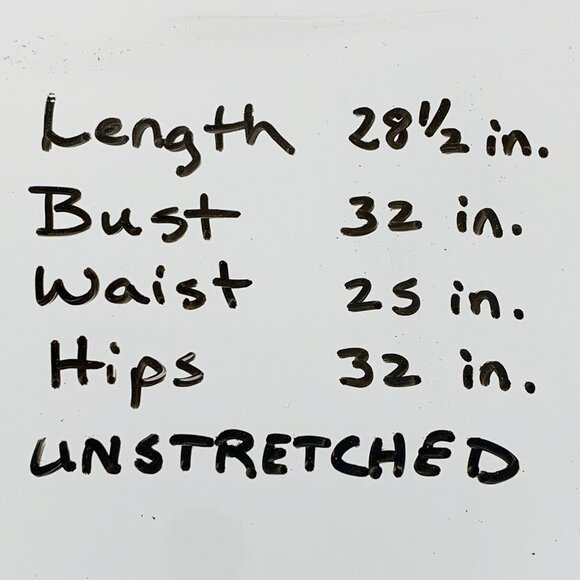 Length 28 1/2 in.
Bust 32 in.
Waist 25 in.
Hips 32 in.
UNSTRETCHED